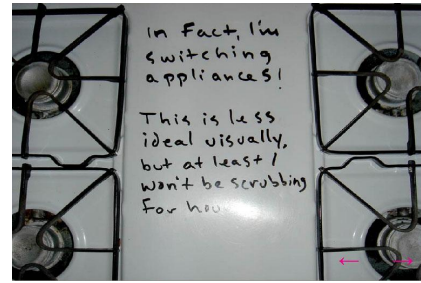 In Fact, I'm
switching
appliances!
This is less
ideal visually,
but at least I
won't be scrubbing
for hou
← →